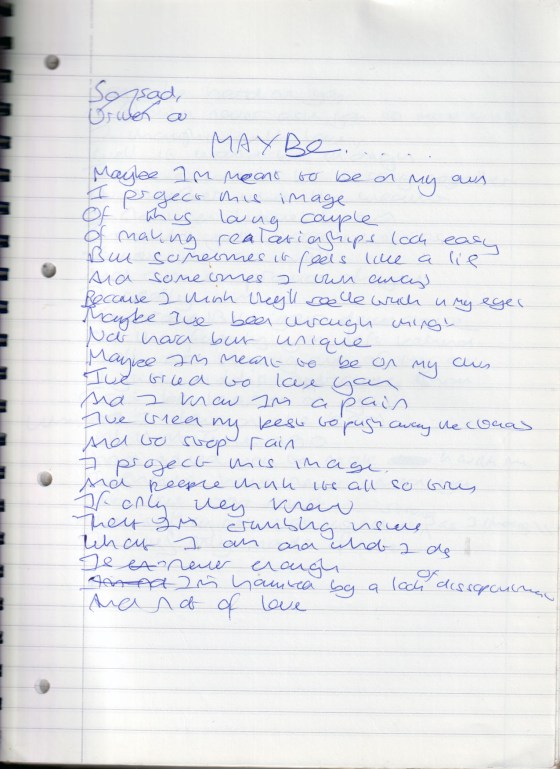 So sad,
MAYBE.......
Maybe I'm meant to be on my own
I project this image
Of this loving couple
Of making realationships look easy
But sometimes it feels like a lie
And sometimes I run away
Because I think they'll see the truth in my eyes
Maybe I've been through things
Not hard but unique
Maybe I'm meant to be on my own
I've tried to love you
And I know I'm a pain
I've tried my best to push away the clouds
And to stop rain
I project this image.
And people think its all so true
If only they knew
That I'm crumbling inside
What I am and what I do
Is never enough
I'm haunted by a look of
And not of love